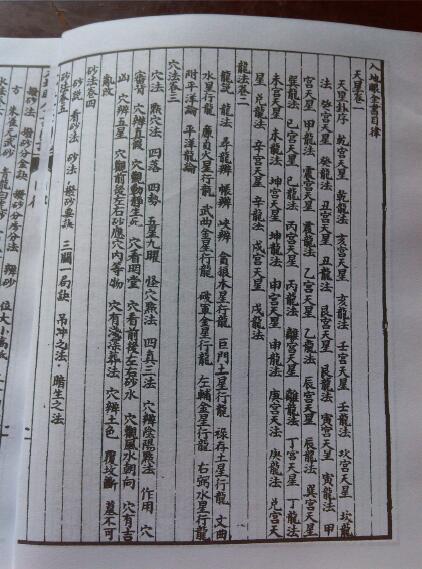 入地眼全書目錄
天星卷一
天星卦序 乾宮天星 乾龍法 亥宮天星 亥龍法 壬宮天星 壬龍法 坎宮天星 坎龍
法 癸宮天星 癸龍法 丑宮天星 丑龍法 艮宮天星 艮龍法 寅宮天星 寅龍法 甲
宮天星 甲龍法 震宮天星 震龍法 乙宮天星 乙龍法 辰宮天星 辰龍法 巽宮天星
巽龍法 巳宮天星 巳龍法 丙宮天星 丙龍法 離宮天星 離龍法 丁宮天星 丁龍法
未宮天星 未龍法 坤宮天星 坤龍法 申宮天星 申龍法 庚宮天星 庚龍法 兌宮天
星 兌龍法 辛宮天星 辛龍法 戌宮天星 戌龍法
龍法卷二
龍說 龍法 尋龍辨 帳辨 峽辨 貪狼木星行龍 巨門土星行龍 祿存土星行龍 文曲
水星行龍 廉貞火星行龍 武曲金星行龍 破軍金星行龍 左輔金星行龍 右弼水星行龍
附平洋論 平洋龍論
穴法卷三
穴法 點穴法 四落 四勢 五星九曜 怪穴點法 四真三法 穴辨陰陽點法 作用 穴
暈 穴辨真假 穴觀動靜生死 穴看明堂 穴看前後左右砂水 穴觀風水朝向 穴有吉
凶 穴辨五星 穴觀前後左右砂應穴內等物 穴有 葬法 穴辨土色 覆墳斷 墓不可
輕改
砂法卷四
砂說 看砂法 砂法 撥砂要訣 三關一局訣 吊沖之法 暗生之法
砂法卷五
撥砂法 撥砂金訣 撥砂分房分法 辨砂